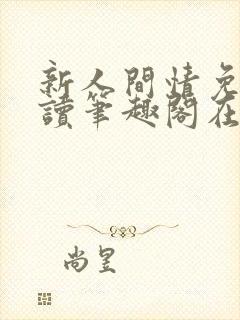 新人間情免
讀筆趣閣在
尚昱